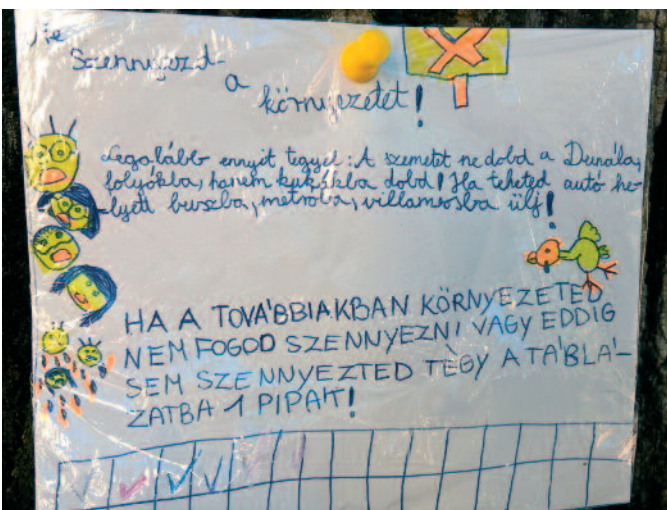 Ne
Szennyezd
a
környezetet!
Legalább ennyit tegyél: A szemetet ne dobd a Dunába,
folyókba, hanem kukákba dobd! Ha teheted autó he-
lyett buszba, metróba, villamosba ülj!
HA A TOVÁBBIAKBAN KÖRNYEZETED
NEM FOGOD SZENNYEZNI VAGY EDDIG
SEM SZENNYEZTED TÉGY A TÁBLÁ-
ZATBA 1 PIPÁT!